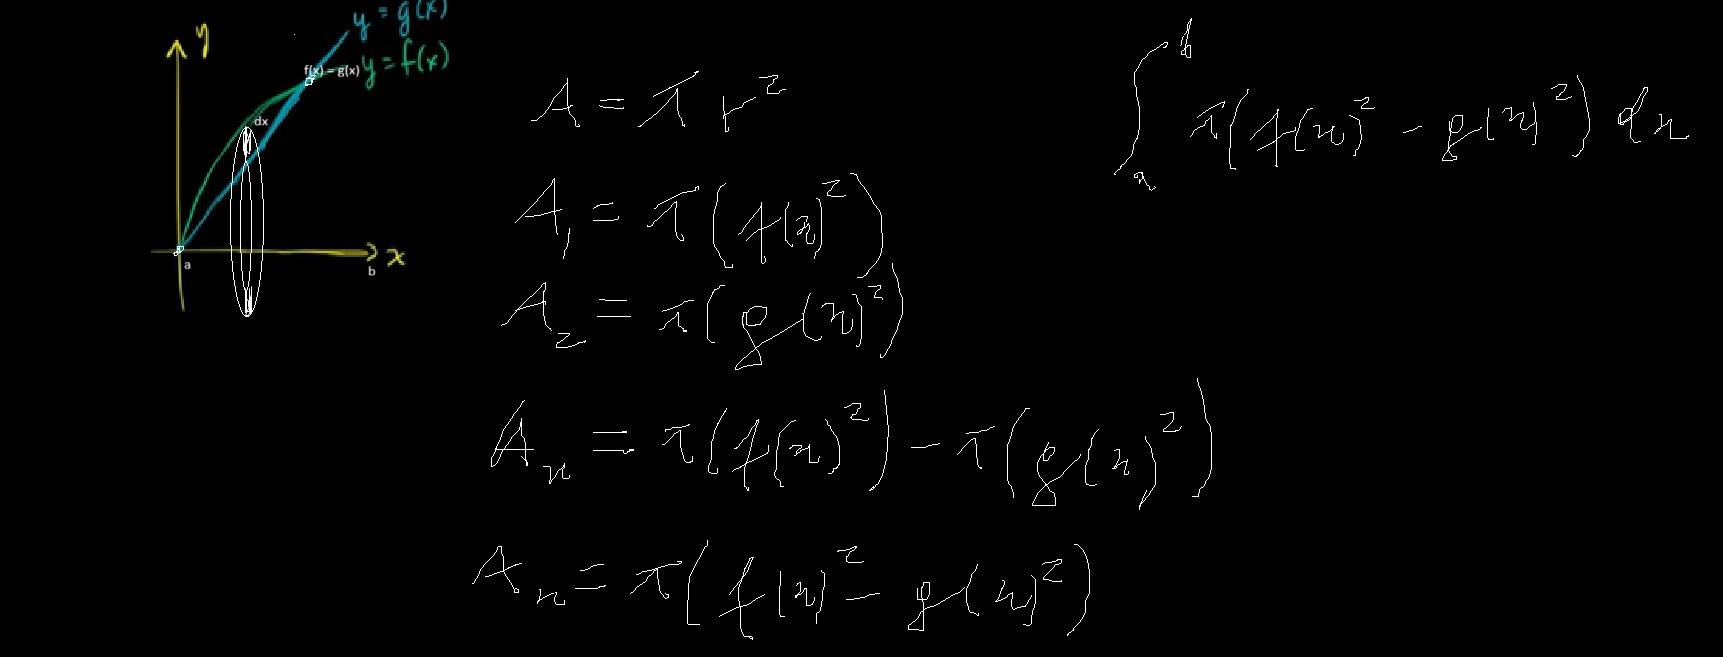 y
y = g(x)
y = f(x)
f(x) = g(x)
dx
a
b
x
A = π r²
A₁ = π (f(x)²)
A₂ = π (g(x)²)
Aₓ = π (f(x)²) - π (g(x)²)
Aₓ = π (f(x)² - g(x)²)
∫ₐᵇ π (f(x)² - g(x)²) dx